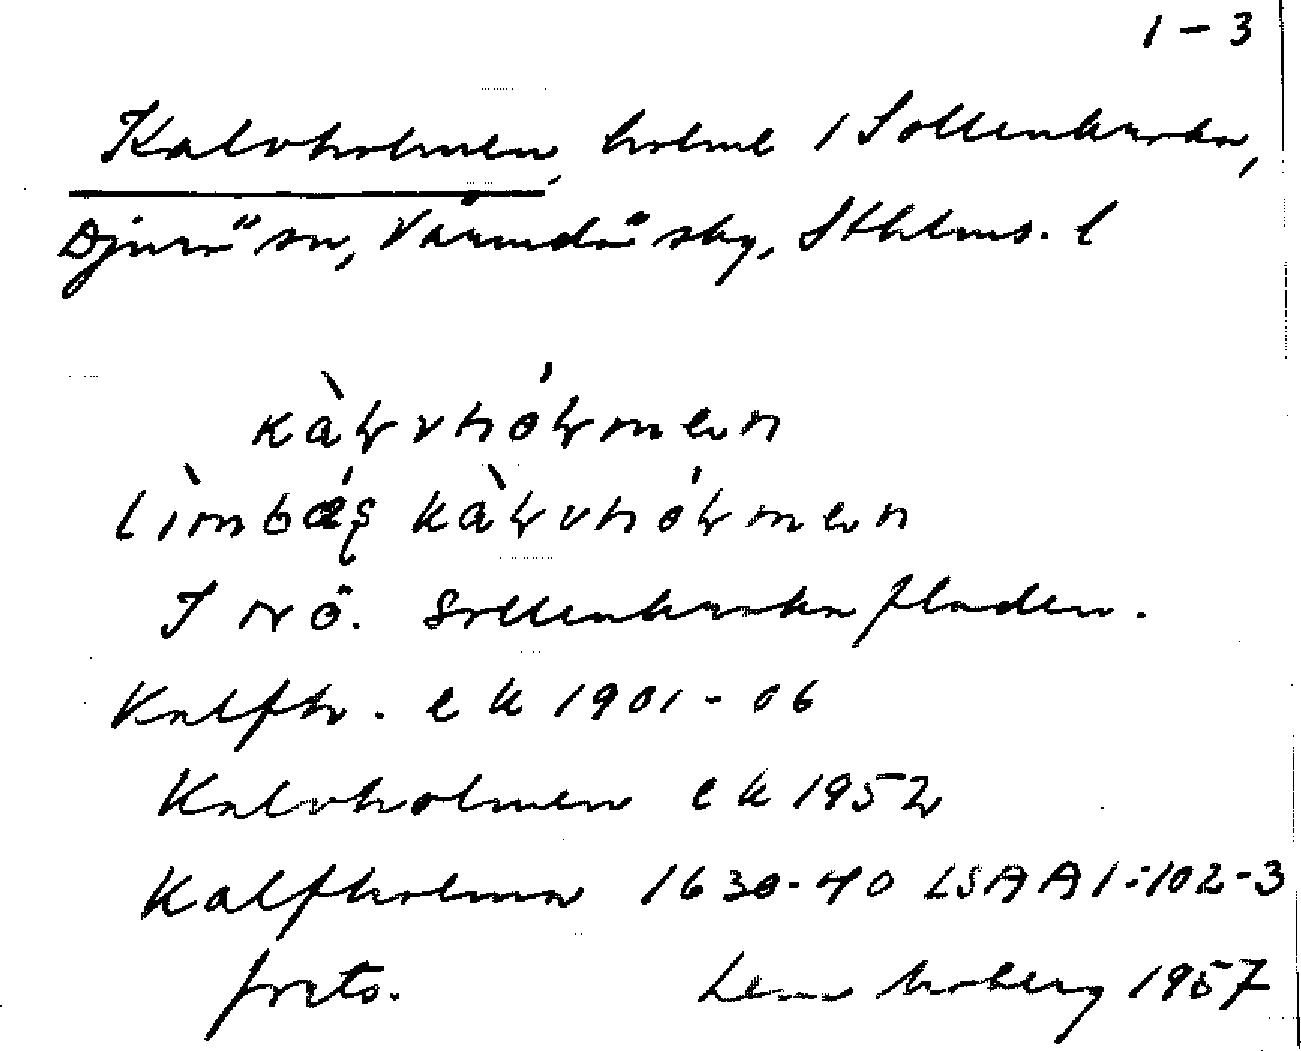 1-3
Kalvholmen, holme i Sollenkroka,
Djurö sn, Värmdö skg, Sthlms. l
kàlvhólmen
lìmbǽʂ kàlvhólmen
I NÖ. Sollenkroka fladen.
Kalfh. ek 1901-06
Kalvholmen ek 1952
Kalfholmen 1630-40 LSA A1:102-3
frats. Moberg 1957